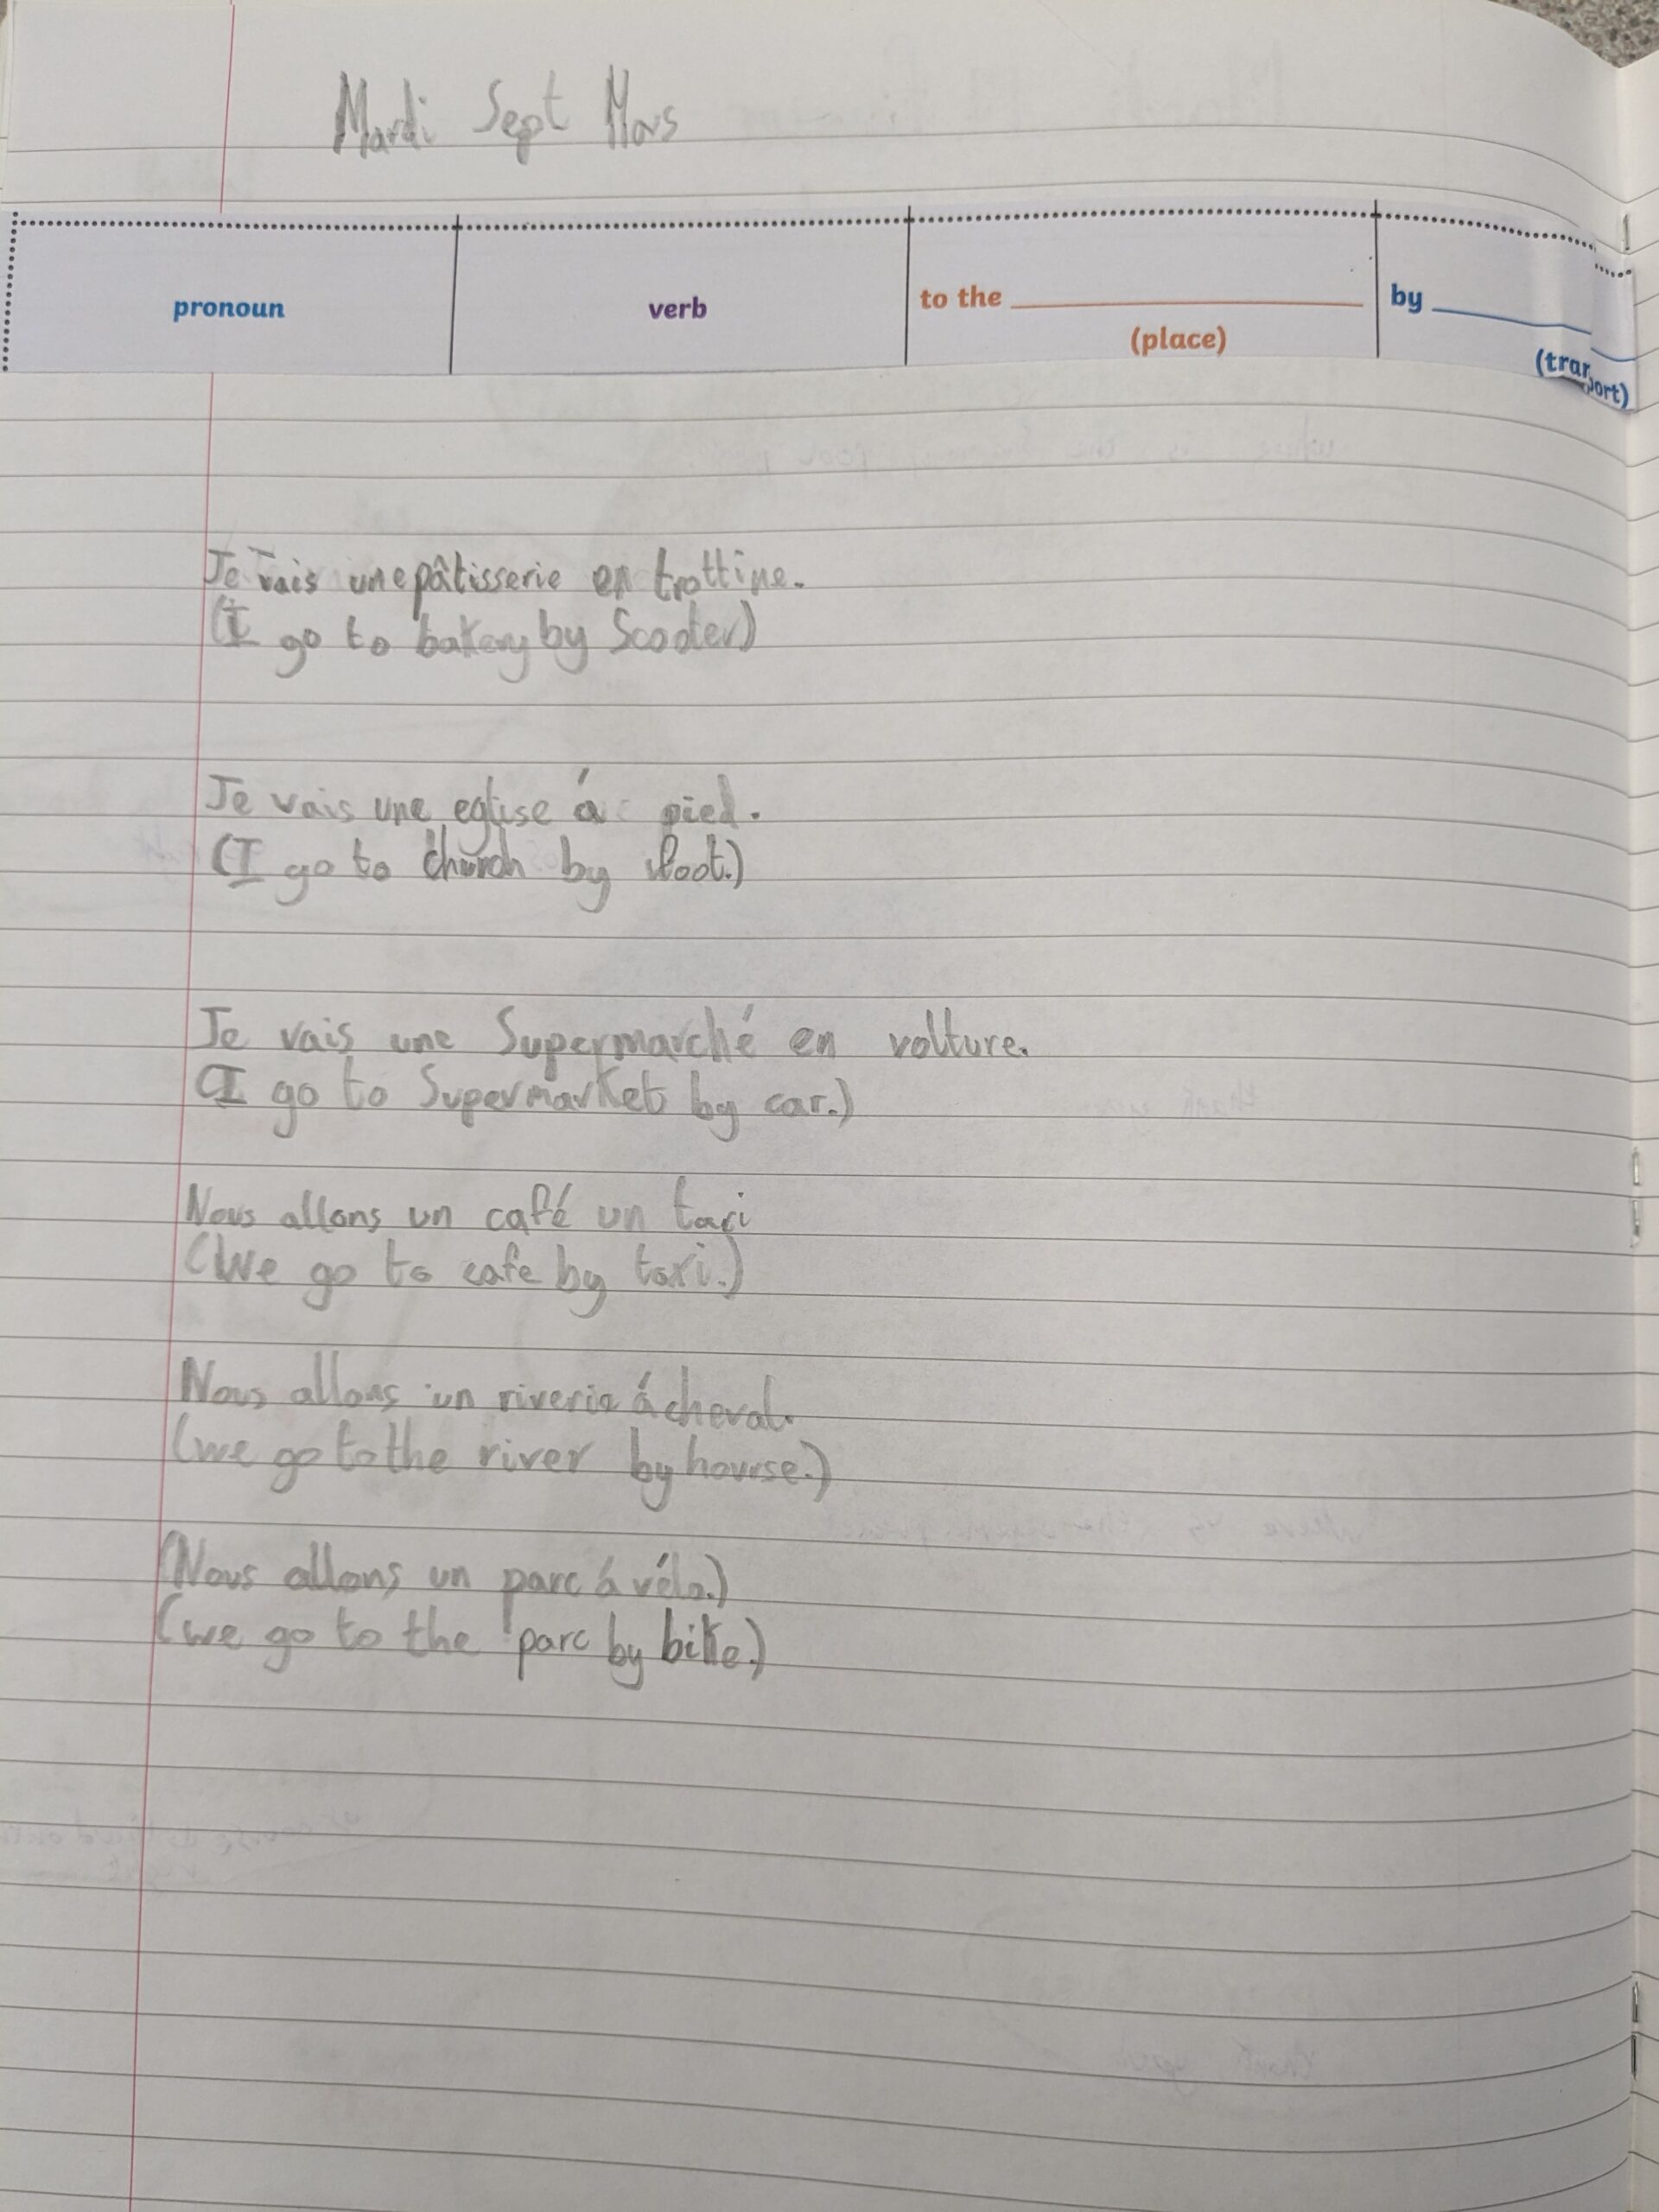 Mardi Sept Mars
pronoun verb to the by
(place)
Je vais une pâtisserie en trottine.
(I go to bakery by Scooter)
Je vais une eglise á pied.
(I go to church by foot.)
Je vais une Supermarché en volture.
(I go to Supermarket by car.)
Nous allons un café un taxi
(We go to cafe by taxi.)
Nous allons un riverie á cheval.
(we go to the river by hourse.)
(Nous allons un parc á vélo.)
(we go to the parc by bike.)